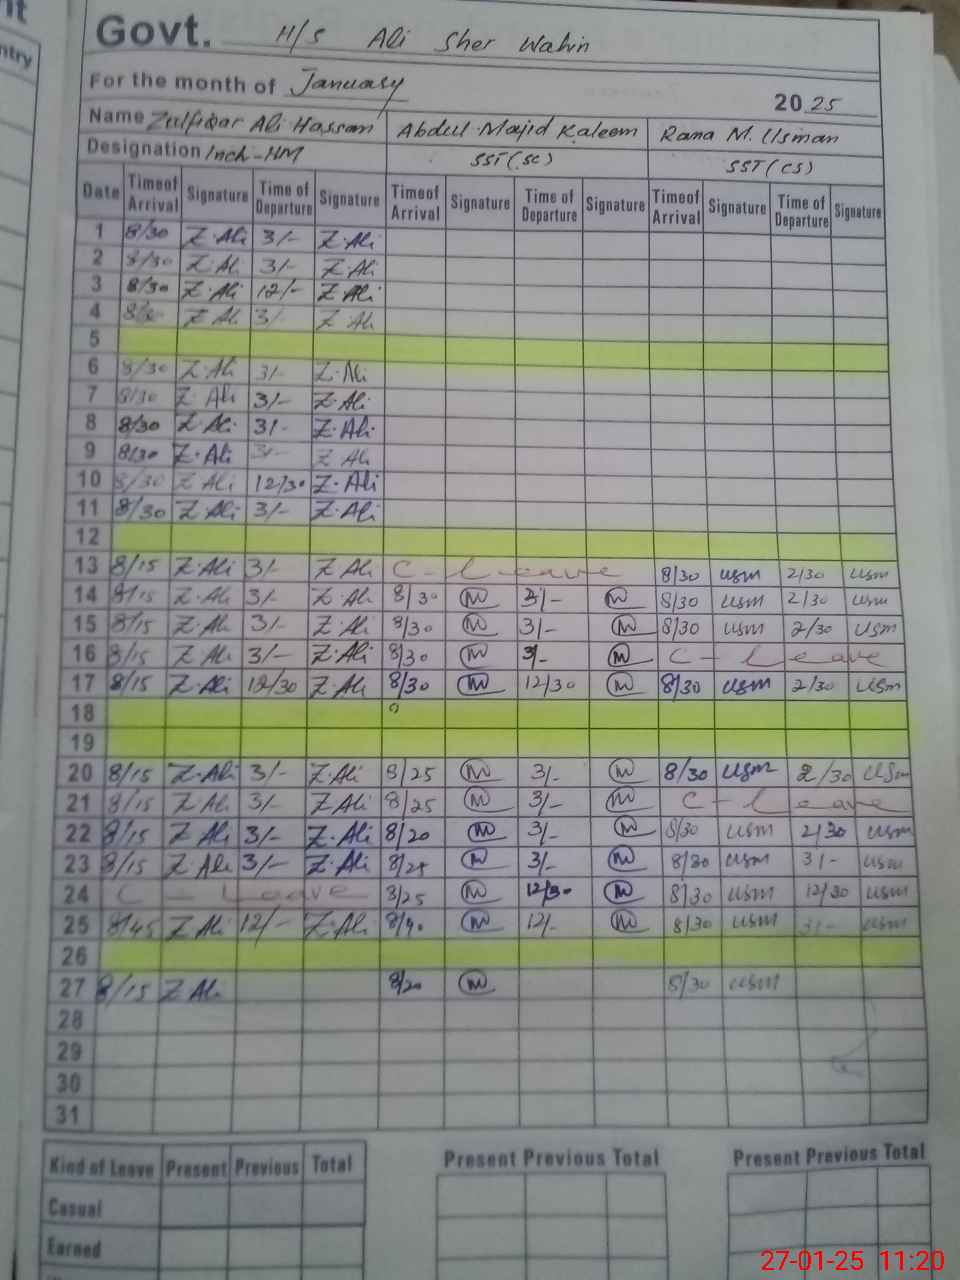 nt
ntry
Govt. H/S Ali Sher Wahin
For the month of January 2025
Name Zulfiqar Ali Hassan Abdul Majid Kaleem Rana M. Usman
Designation Inch-HM SST(SC) SST(CS)
Date Timeof Arrival Signature Time of Departure Signature Timeof Arrival Signature Time of Departure Signature Timeof Arrival Signature Time of Departure Signature
1 8/30 Z·Ali 3/- Z·Ali
2 8/30 Z·Ali 3/- Z·Ali
3 8/30 Z·Ali 12/- Z·Ali
4 Z Ali 3/- Z Ali
5
6 8/30 Z·Ali 3/- Z·Ali
7 8/30 Z·Ali 3/- Z·Ali
8 8/30 Z·Ali 3/- Z·Ali
9 8/30 Z·Ali 3/- Z Ali
10 8/30 Z Ali 12/30 Z·Ali
11 8/30 Z·Ali 3/- Z·Ali
12
13 8/15 Z·Ali 3/- Z Ali C - Leave 8/30 usm 2/30 usm
14 8/15 Z·Ali 3/- Z·Ali 8/30 M 3/- M 8/30 usm 2/30 usm
15 8/15 Z·Ali 3/- Z·Ali 8/30 M 3/- M 8/30 usm 2/30 usm
16 8/15 Z Ali 3/- Z·Ali 8/30 M 3/- M C - Leave
17 8/15 Z·Ali 12/30 Z·Ali 8/30 M 12/30 M 8/30 usm 2/30 usm
18
19
20 8/15 Z·Ali 3/- Z·Ali 8/25 M 3/- M 8/30 usm 2/30 usm
21 8/15 Z Ali 3/- Z Ali 8/25 M 3/- M C - Leave
22 8/15 Z Ali 3/- Z·Ali 8/20 M 3/- M 8/30 usm 2/30 usm
23 8/15 Z Ali 3/- Z·Ali 8/25 M 3/- M 8/30 usm 3/- usm
24 C - Leave 8/25 M 12/30 M 8/30 usm 12/30 usm
25 8/45 Z Ali 12/- Z·Ali M 12/- M 8/30 usm 3/- usm
26
27 8/15 Z Ali 8/20 M 8/30 usm
28
29
30
31
Kind of Leave Present Previous Total Present Previous Total Present Previous Total
Casual
Earned
27-01-25 11:20